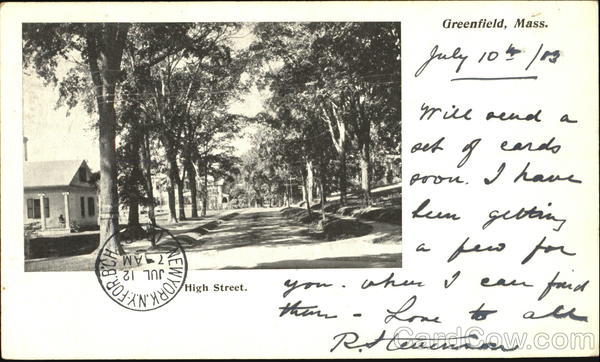 Greenfield, Mass.
July 10th /03
Will send a
set of cards
soon. I have
been getting
a few for
you. when I can find
them - Love to all
R.
High Street.
NEW YORK, N.Y.-FOR. BCH
JUL 12
7 AM
CardCow.com